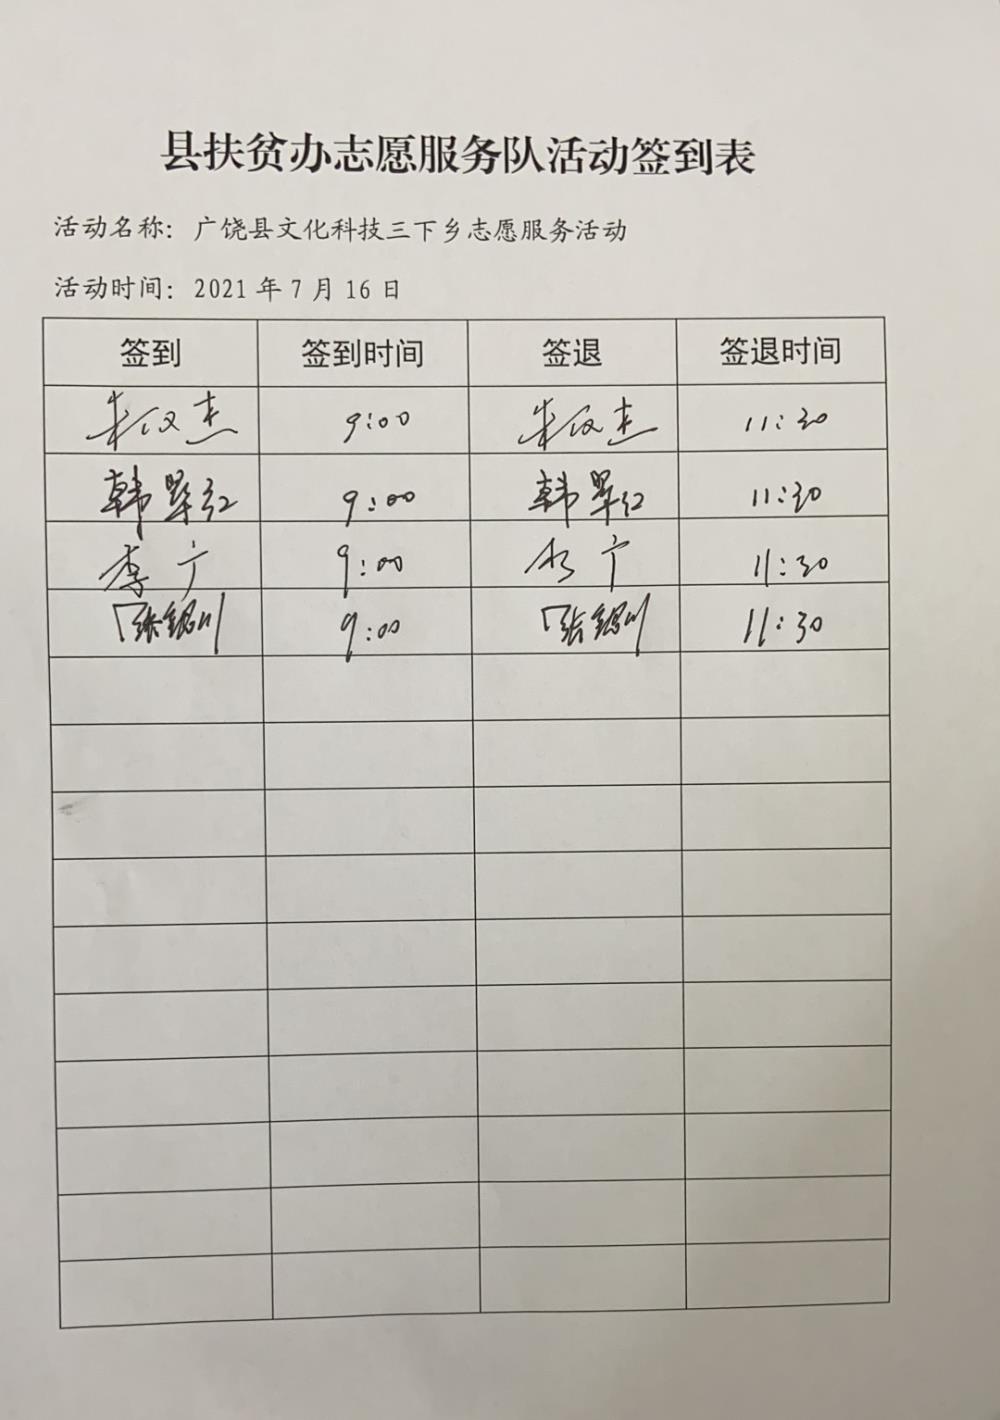 县扶贫办志愿服务队活动签到表
活动名称：广饶县文化科技三下乡志愿服务活动
活动时间：2021 年 7 月 16 日
签到 签到时间 签退 签退时间
朱汉杰 9:00 朱汉杰 11:30
韩翠红 9:00 韩翠红 11:30
李广 9:00 李广 11:30
张银川 9:00 张银川 11:30